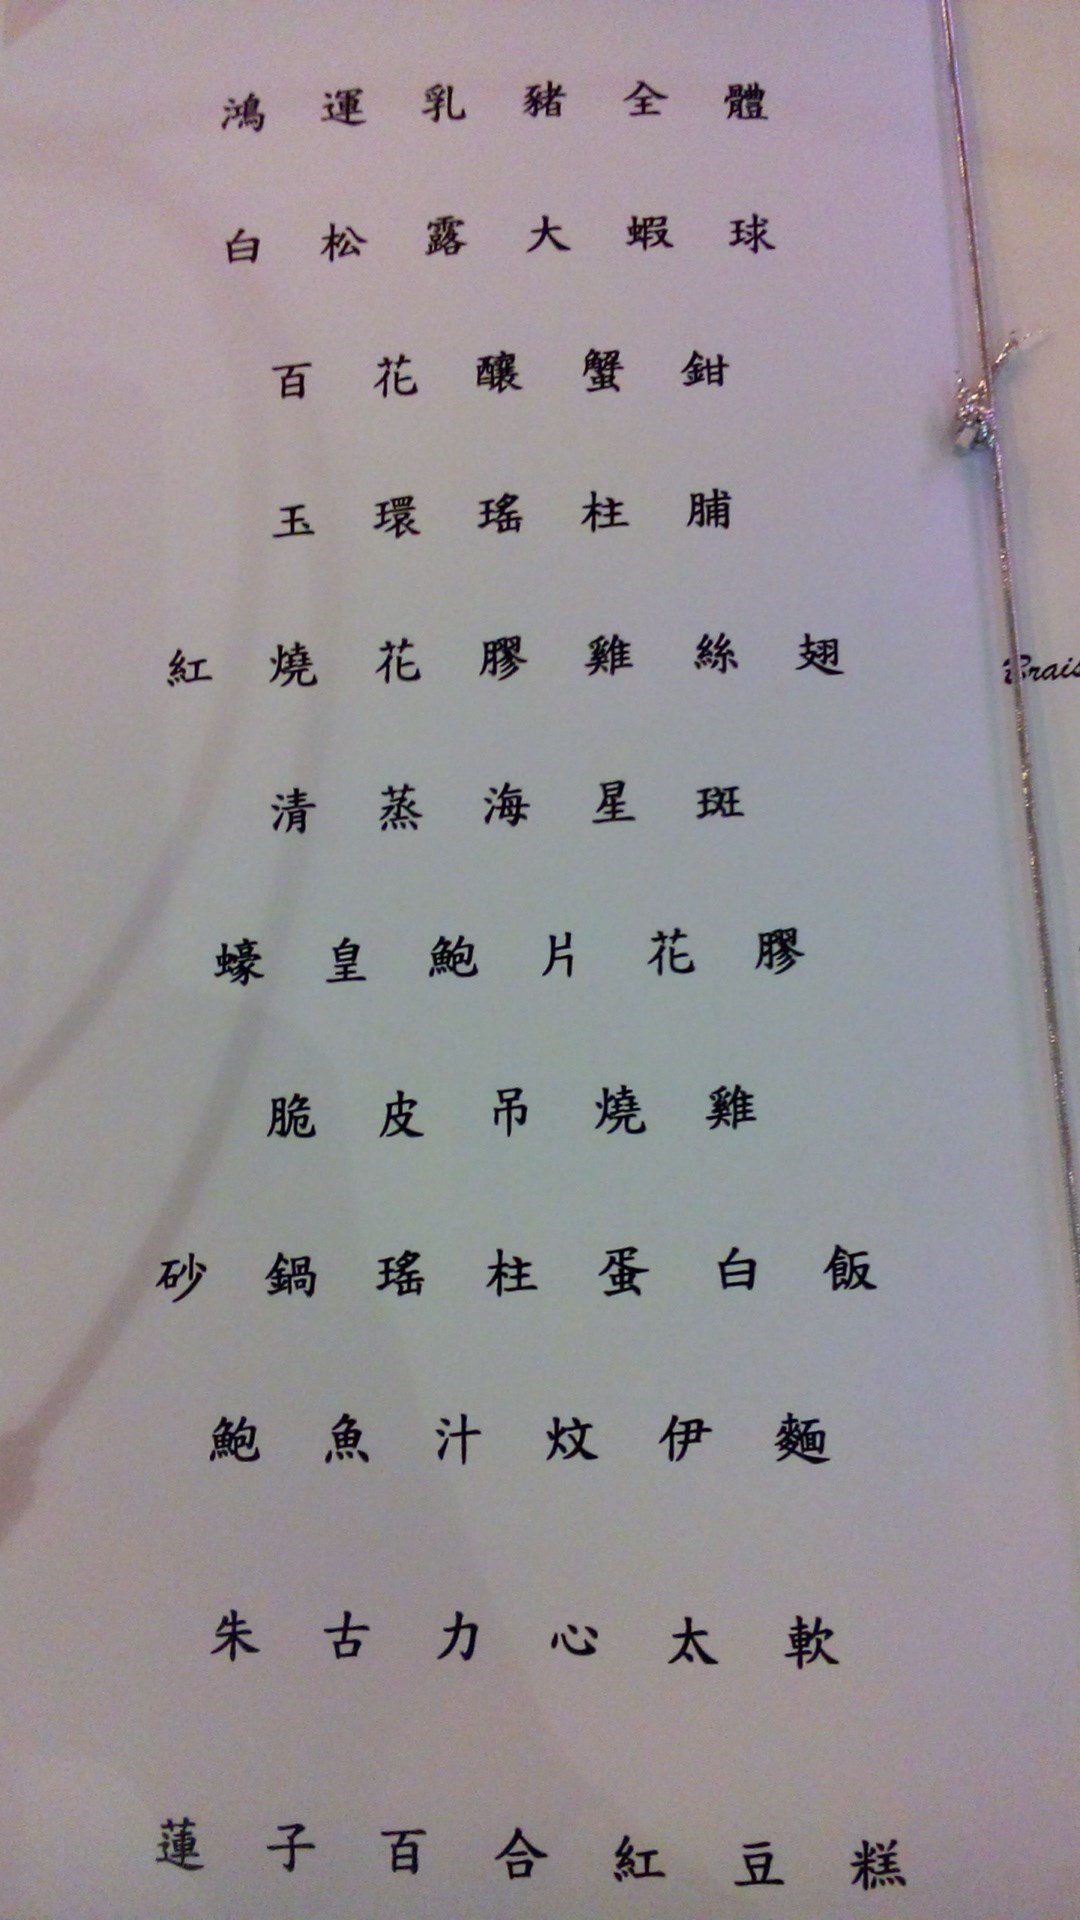 鴻運乳豬全體
白松露大蝦球
百花釀蟹鉗
玉環瑤柱脯
紅燒花膠雞絲翅
Brais
清蒸海星斑
蠔皇鮑片花膠
脆皮吊燒雞
砂鍋瑤柱蛋白飯
鮑魚汁炆伊麵
朱古力心太軟
蓮子百合紅豆糕